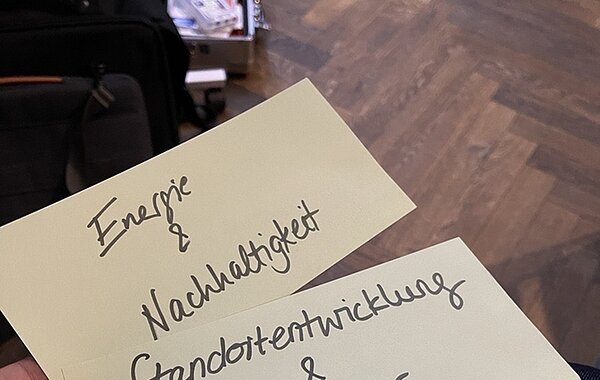 Energie
&
Nachhaltigkeit
Standortentwicklung
&